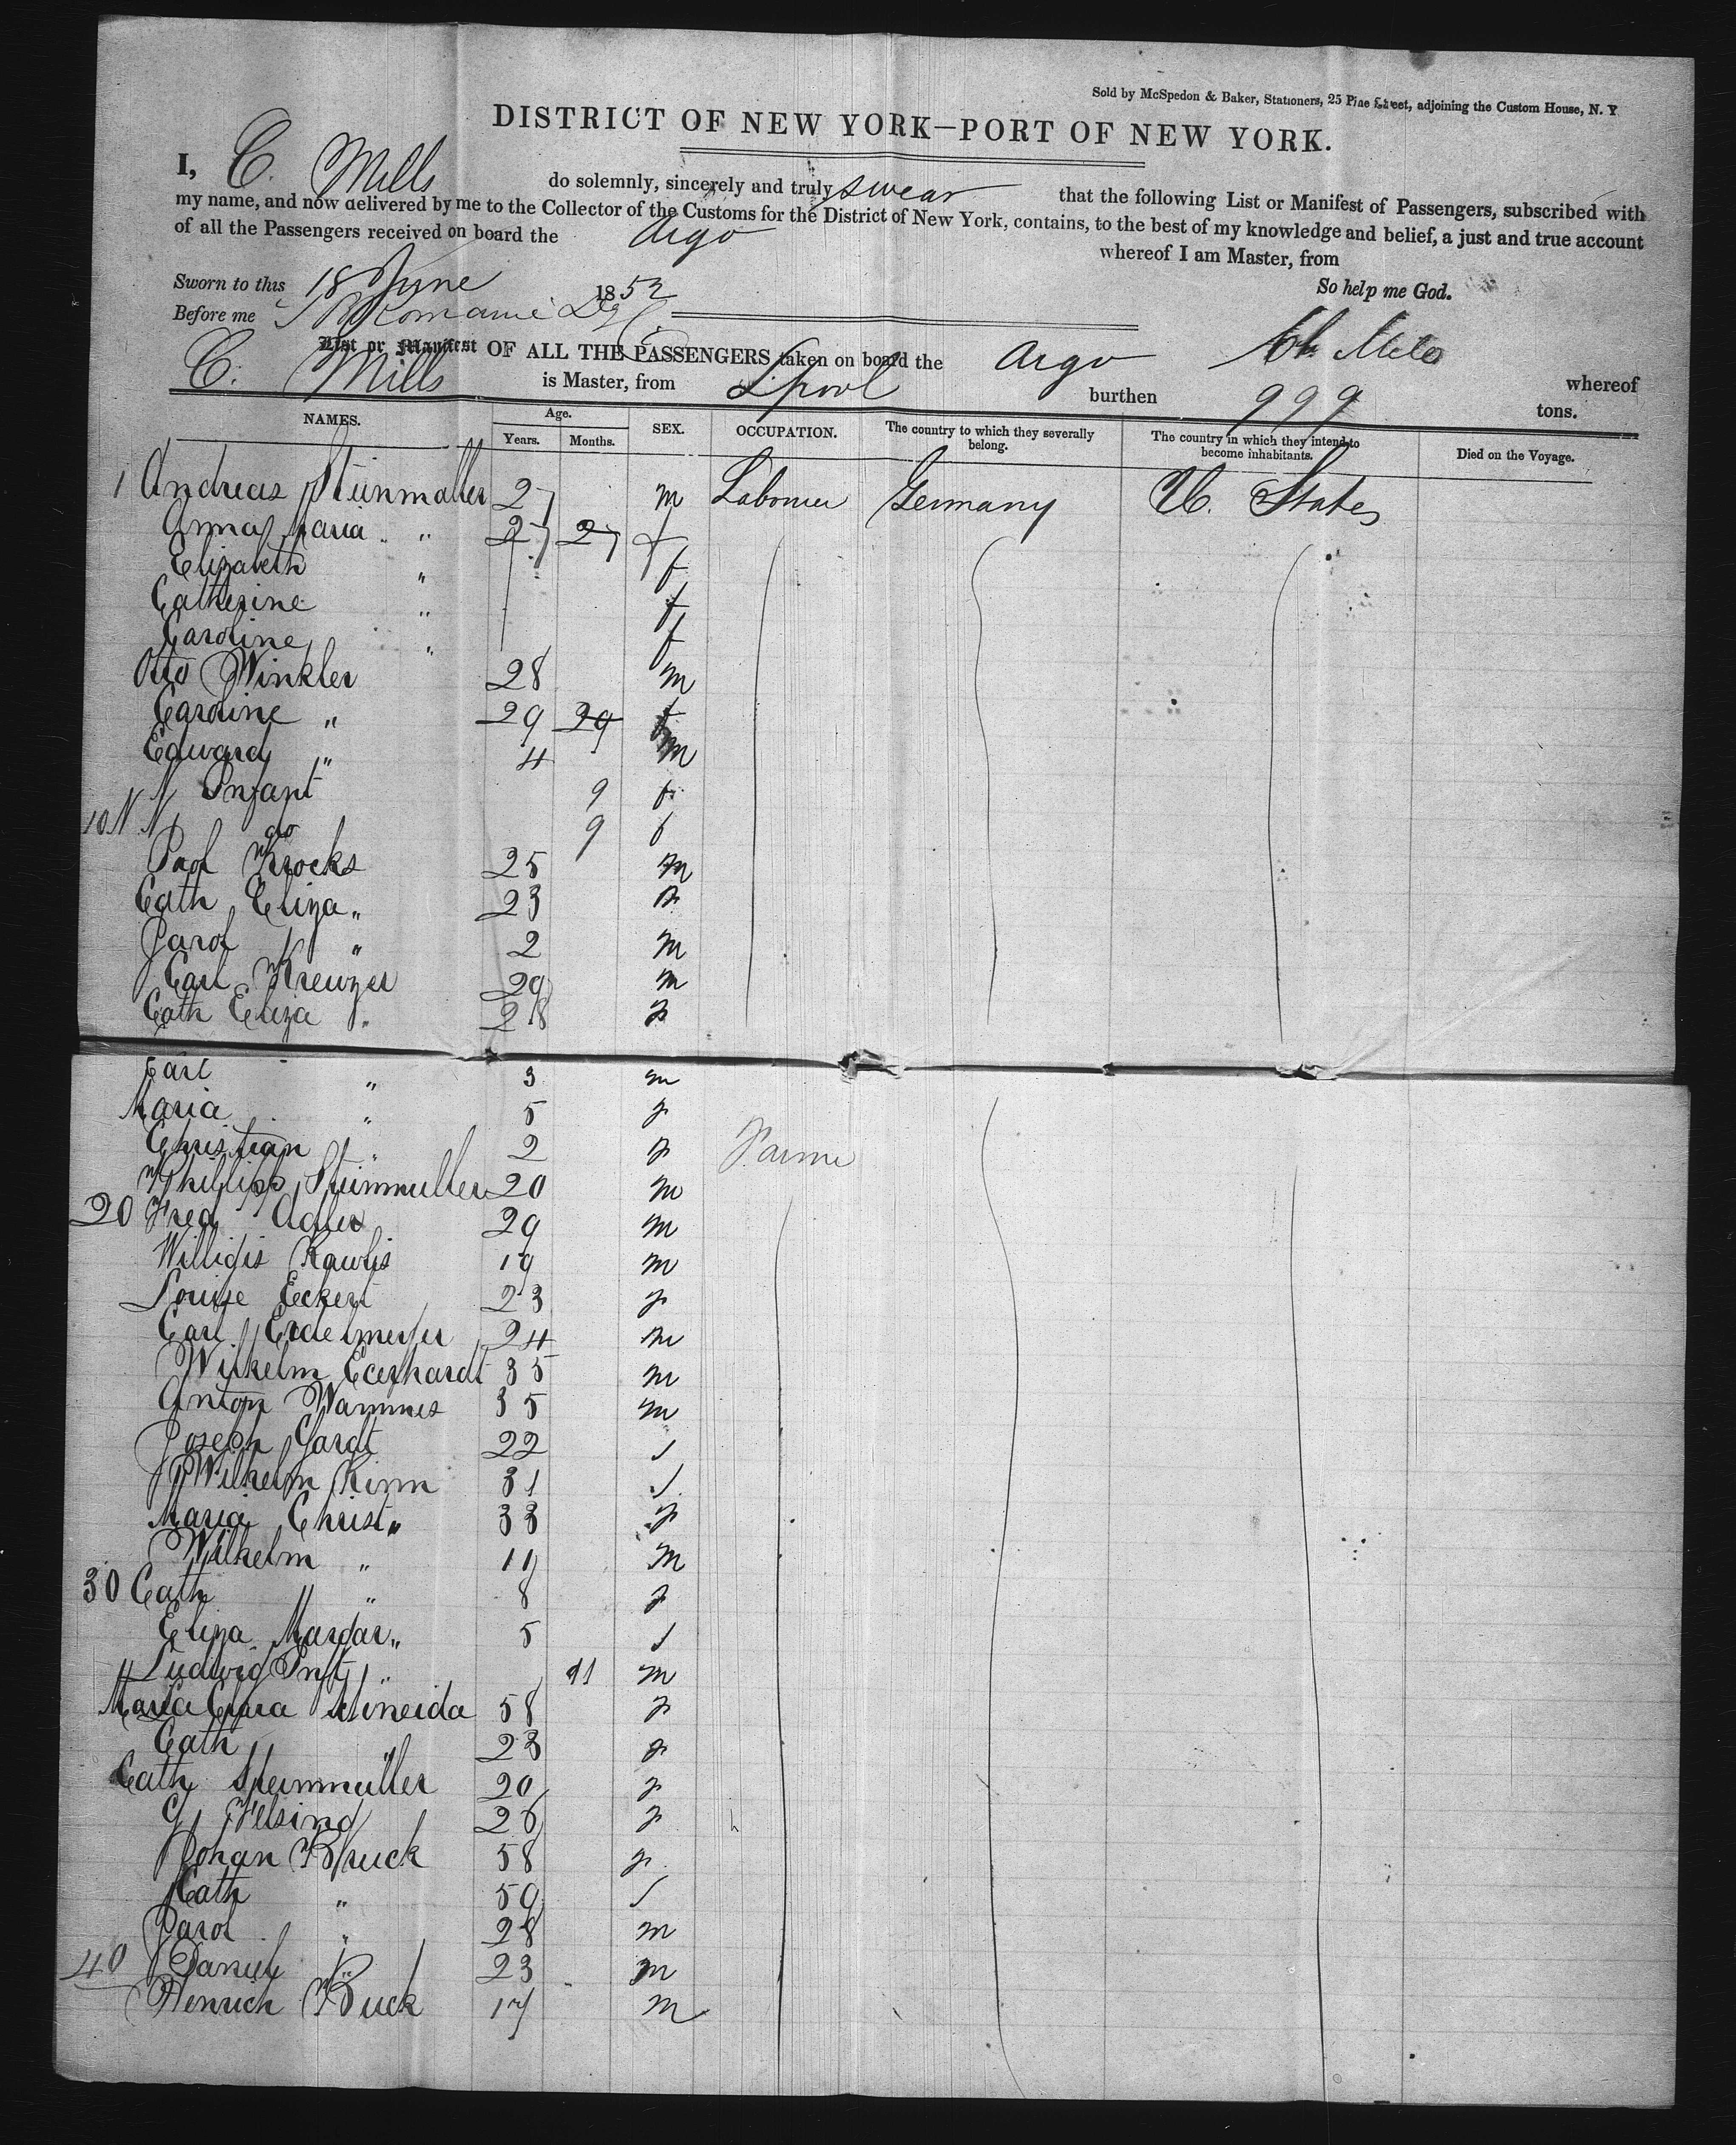 Sold by McSpedon & Baker, Stationers, 25 Pine Street, adjoining the Custom House, N. Y
DISTRICT OF NEW YORK—PORT OF NEW YORK.
I, C. Mills do solemnly, sincerely and truly swear that the following List or Manifest of Passengers, subscribed with
my name, and now delivered by me to the Collector of the Customs for the District of New York, contains, to the best of my knowledge and belief, a just and true account
of all the Passengers received on board the Argo whereof I am Master, from
Sworn to this 18 June 1852 So help me God.
Before me
List or Manifest OF ALL THE PASSENGERS taken on board the Argo whereof
C. Mills is Master, from Lpool burthen 999 tons.
NAMES. Age. Years. Months. SEX. OCCUPATION. The country to which they severally belong. The country in which they intend to become inhabitants. Died on the Voyage.
1 Andreas Steinmaller 27 m Labourer Germany U. States
Anna Maria " 27 27 f
Elizabeth " f
Catherine " f
Caroline " f
Otto Winkler 28 m
Caroline " 29 29 f
Edward " 4 m
N Infant 9 f
10 N N do 9 f
Krocks 25 m
Cath Eliza " 23 f
Jacob " 2 m
Carl Kreuzer 29 m
Cath Eliza " 28 f
Carl " 3 m
Maria " 5 f
Christian " 2 f Farme
Philipp Steinmuller 20 m
20 Fred Adler 29 m
Willigis 19 m
Louise Eckert 23 f
Carl Erdelmeyer 24 m
Wilhelm Eckhardt 35 m
Anton Wammes 35 m
Joseph 22 f
Wilhelm Kinn 31 f
Maria Christ " 33 f
Wilhelm " 11 m
30 Cath " 8 f
Eliza Margar " 5 f
Ludwig Inft " 11 m
Maria Clara 58 f
Cath " 23 f
Cath Steinmuller 20 f
Felsing 26 f
Johan Bruck 58 f
Cath " 59 f
Jacob " 28 m
40 Daniel " 23 m
Henrich Buck 17 m